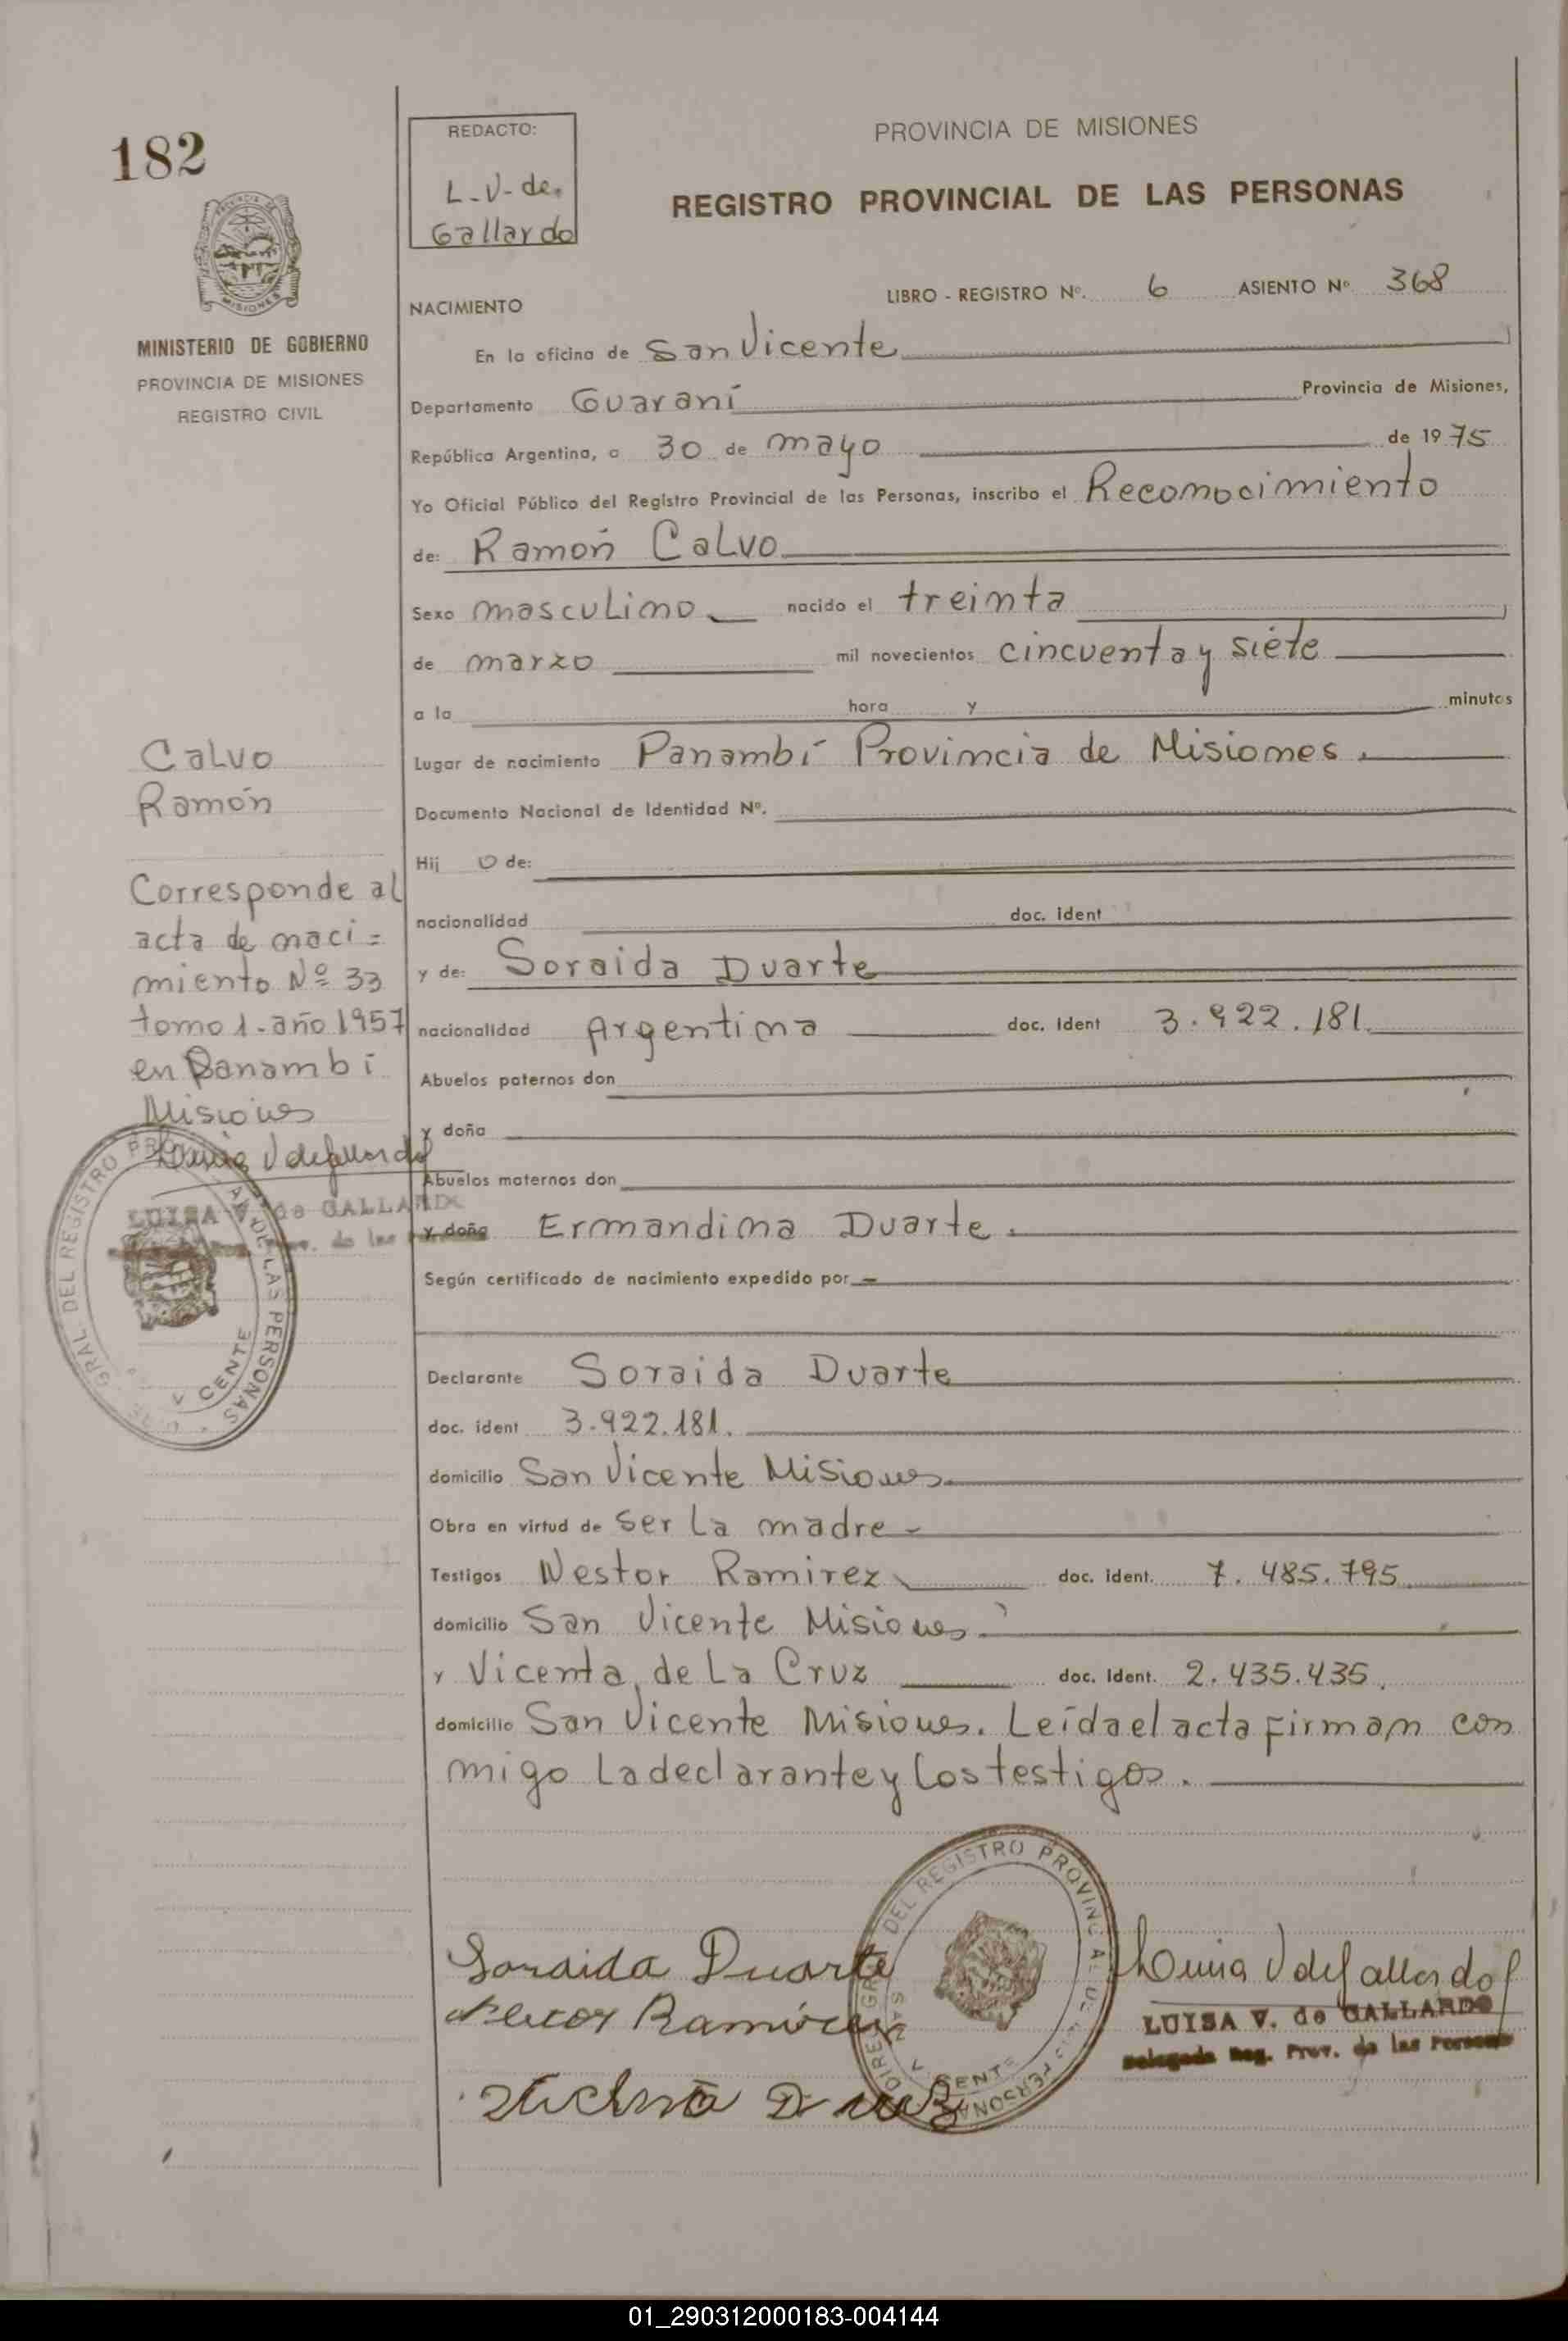 182
REDACTO:
L-V-de.
Gallardo
PROVINCIA DE MISIONES
REGISTRO PROVINCIAL DE LAS PERSONAS
MISIONES
MINISTERIO DE GOBIERNO
PROVINCIA DE MISIONES
REGISTRO CIVIL
NACIMIENTO
LIBRO - REGISTRO Nº. 6 ASIENTO Nº 368
En la oficina de San Vicente
Departamento Guaraní Provincia de Misiones,
República Argentina, a 30 de mayo de 1975
Yo Oficial Público del Registro Provincial de las Personas, inscribo el Reconocimiento
de: Ramón Calvo
Sexo masculino nacido el treinta
de marzo mil novecientos cincuenta y siete
a la hora y minutos
Lugar de nacimiento Panambí Provincia de Misiones.
Documento Nacional de Identidad Nº.
Hij o de:
nacionalidad doc. ident
y de: Soraida Duarte
nacionalidad Argentina doc. Ident 3.922.181.
Abuelos paternos don
y doña
Abuelos maternos don
y doña Ermandina Duarte.
Según certificado de nacimiento expedido por
Declarante Soraida Duarte
doc. ident 3.922.181.
domicilio San Vicente Misiones.
Obra en virtud de ser la madre-
Testigos Nestor Ramirez doc. ident. 7.485.795
domicilio San Vicente Misiones
y Vicenta de La Cruz doc. Ident. 2.435.435.
domicilio San Vicente Misiones. Leída el acta firman con
migo La declarante y Los testigos.
Calvo
Ramón
Corresponde al
acta de naci=
miento Nº 33
tomo 1- año 1957
en Panambí
Misiones
Luisa V de Gallardo
LUISA V. de GALLARDO
GRAL. DEL REGISTRO PROVINCIAL DE LAS PERSONAS
Soraida Duarte
Nestor Ramirez
DEL REGISTRO PROVINCIAL DE LAS PERSONAS
SAN VICENTE
Luisa V de Gallardo
LUISA V. de GALLARDO
Delegada Reg. Prov. de las Personas
01_290312000183-004144